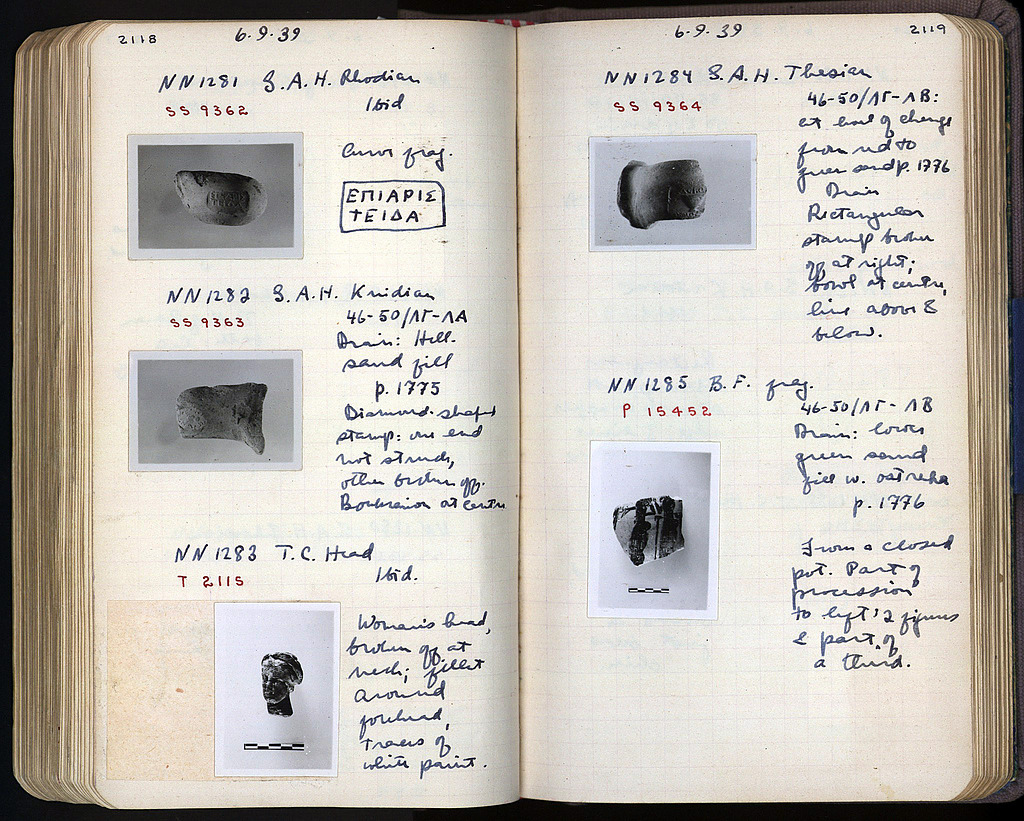 2118
6.9.39
NN1281 S.A.H. Rhodian
SS 9362
Ibid
Curve frag.
ΕΠΙΑΡΙΣ
ΤΕΙΔΑ
NN1282 S.A.H. Knidian
SS 9363
46-50/ΛΓ-ΛΑ
Drain: Hell.
sand fill
p. 1775
Diamond-shaped
stamp: one end
not struck,
other broken off.
Boukranion at centre
NN1283 T.C. Head
T 2115
Ibid.
Woman's head,
broken off at
neck; fillet
around
forehead,
traces of
white paint.
6.9.39
2119
NN1284 S.A.H. Thasian
SS 9364
46-50/ΛΓ-ΛΒ:
at level of change
from red to
green sand p. 1776
Drain
Rectangular
stamp broken
off at right;
bowl at centre,
line above &
below.
NN1285 B.F. frag.
P 15452
46-50/ΛΓ-ΛΒ
Drain: lower
green sand
fill w. ostraka
p. 1776
From a closed
pot. Part of
procession
to left: 2 figures
& part of
a third.